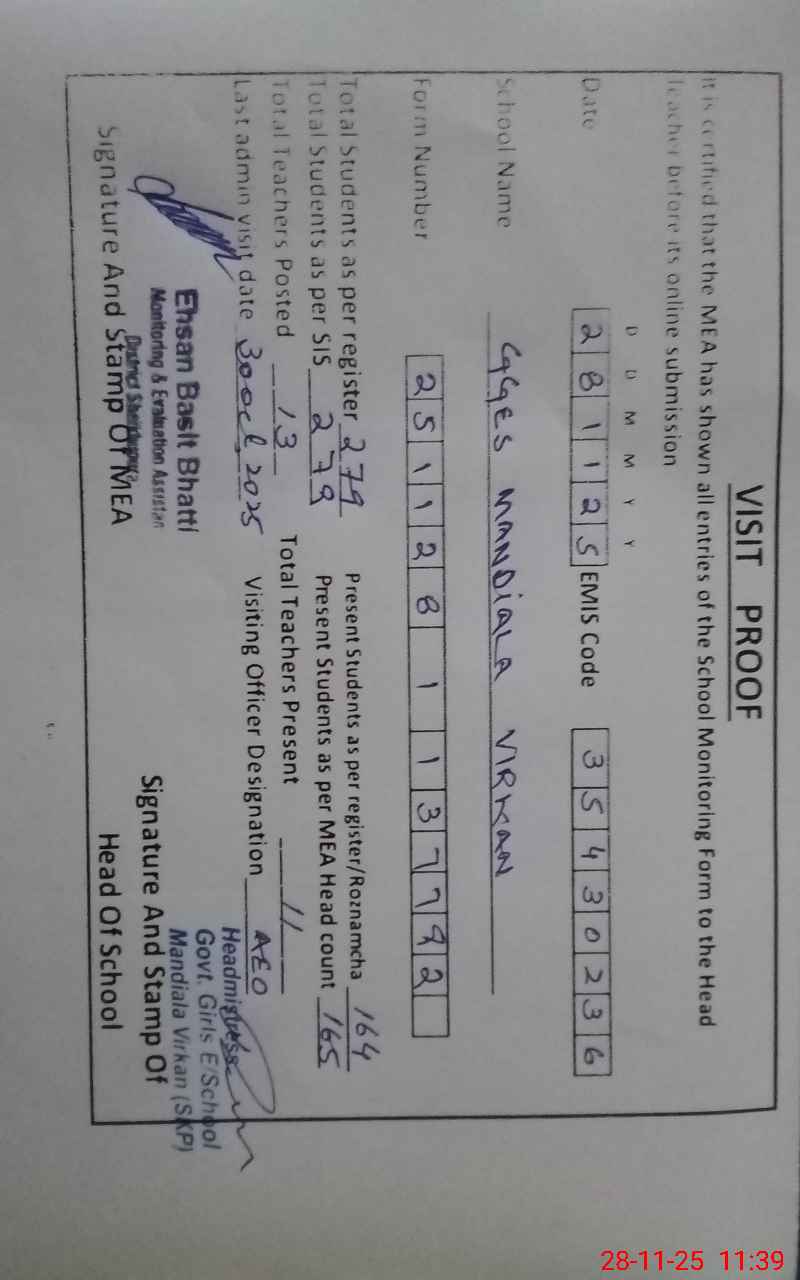 VISIT PROOF
It is certified that the MEA has shown all entries of the School Monitoring Form to the Head
Teacher before its online submission
D D M M Y Y
Date 2 8 1 1 2 5 EMIS Code 3 5 4 3 0 2 3 6
School Name GGES MANDIALA VIRKAN
Form Number 2 5 1 1 2 8 1 1 3 7 7 9 2
Total Students as per register 279 Present Students as per register/Roznamcha 164
Total Students as per SIS 279 Present Students as per MEA Head count 165
Total Teachers Posted 13 Total Teachers Present 11
Last admin visit date 30 oct 2025 Visiting Officer Designation AEO
Ehsan Basit Bhatti
Monitoring & Evaluation Assistan
District Sheikhupura
Signature And Stamp Of MEA
Headmistress
Govt. Girls E/School
Mandiala Virkan (SKP)
Signature And Stamp Of
Head Of School
28-11-25 11:39